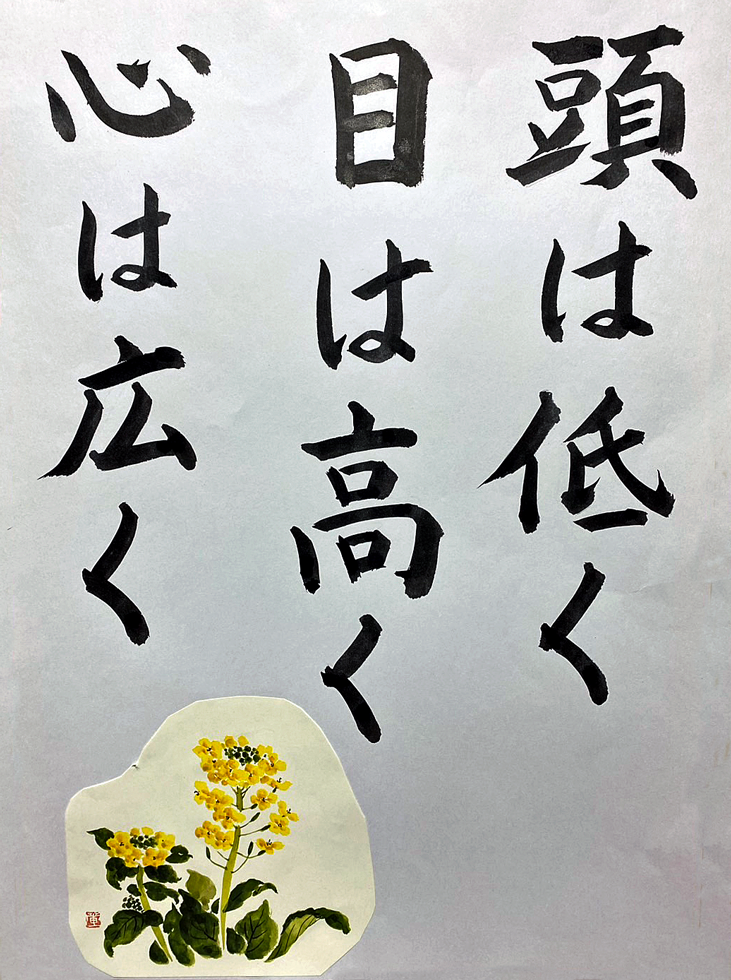 頭は低く
目は高く
心は広く